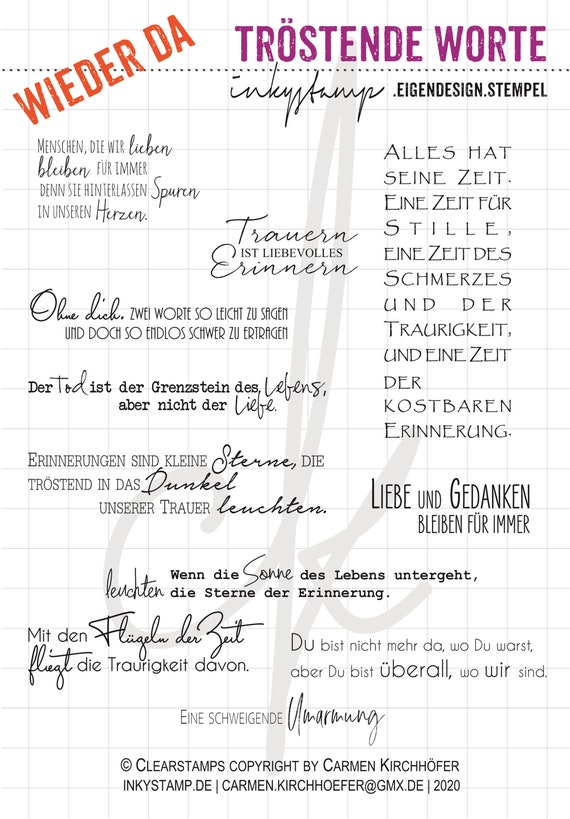 WIEDER DA
TRÖSTENDE WORTE
inkystamp .EIGENDESIGN.STEMPEL
MENSCHEN, DIE WIR lieben
bleiben FÜR IMMER
DENN SIE HINTERLASSEN Spuren
IN UNSEREN Herzen.
Trauern
IST LIEBEVOLLES
Erinnern
ALLES HAT
SEINE ZEIT.
EINE ZEIT FÜR
STILLE,
EINE ZEIT DES
SCHMERZES
UND DER
TRAURIGKEIT,
UND EINE ZEIT
DER
KOSTBAREN
ERINNERUNG.
Ohne dich. ZWEI WORTE SO LEICHT ZU SAGEN
UND DOCH SO ENDLOS SCHWER ZU ERTRAGEN
Der Tod ist der Grenzstein des Lebens,
aber nicht der Liebe.
ERINNERUNGEN SIND KLEINE Sterne, DIE
TRÖSTEND IN DAS Dunkel
UNSERER TRAUER leuchten.
LIEBE UND GEDANKEN
BLEIBEN FÜR IMMER
Wenn die Sonne des Lebens untergeht,
leuchten die Sterne der Erinnerung.
Mit den Flügeln der Zeit
fliegt die Traurigkeit davon.
Du bist nicht mehr da, wo Du warst,
aber Du bist überall, wo wir sind.
EINE SCHWEIGENDE Umarmung
ck
© CLEARSTAMPS COPYRIGHT BY CARMEN KIRCHHÖFER
INKYSTAMP.DE | CARMEN.KIRCHHOEFER@GMX.DE | 2020